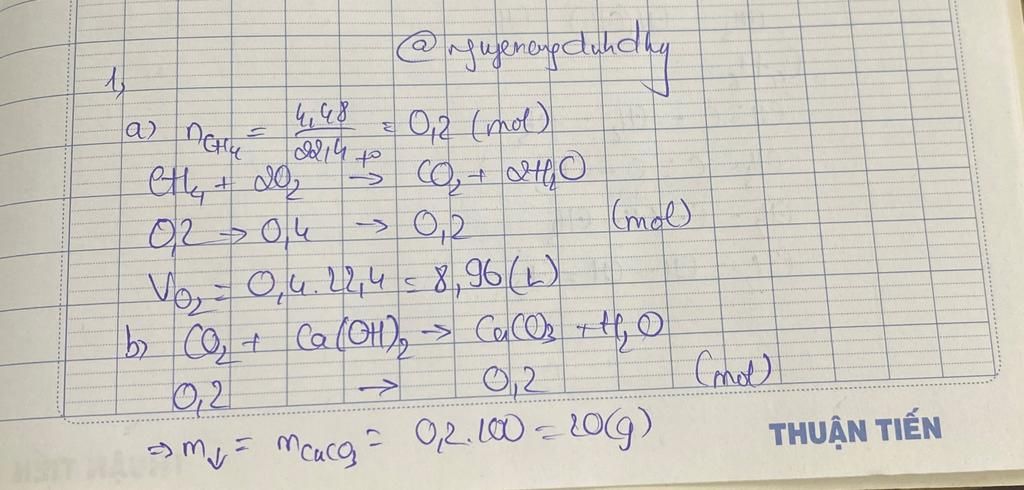 @nguyenengduhdhy
1,
a) nCH₄ = 4,48/22,4 = 0,2 (mol)
CH₄ + 2O₂ →t° CO₂ + 2H₂O
0,2 → 0,4 → 0,2 (mol)
VO₂ = 0,4.22,4 = 8,96 (L)
b) CO₂ + Ca(OH)₂ → CaCO₃ + H₂O
0,2 → 0,2 (mol)
⇒ m↓ = mCaCO₃ = 0,2.100 = 20(g)
THUẬN TIẾN